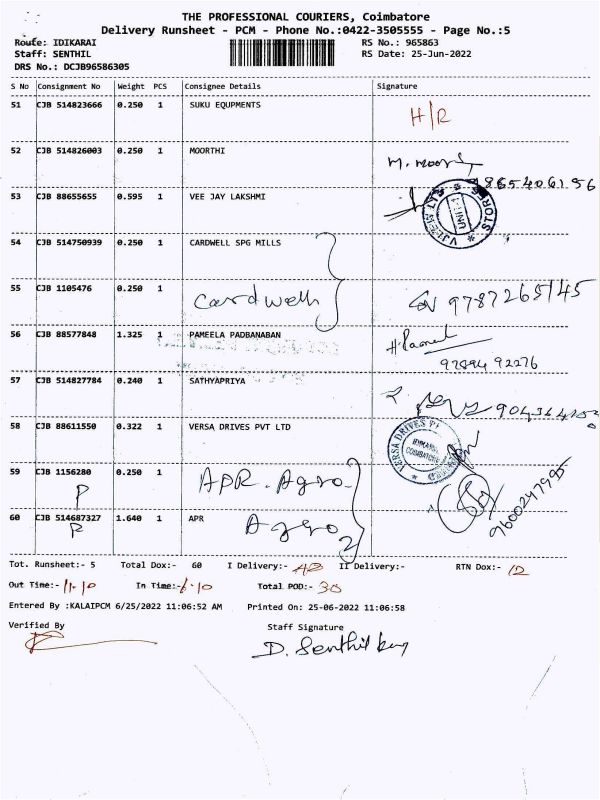 THE PROFESSIONAL COURIERS, Coimbatore
Delivery Runsheet - PCM - Phone No.:0422-3505555 - Page No.:5
Route: IDIKARAI RS No.: 965863
Staff: SENTHIL RS Date: 25-Jun-2022
DRS No.: DCJB96586305
S No Consignment No Weight PCS Consignee Details Signature
51 CJB 514823666 0.250 1 SUKU EQUPMENTS H/R
52 CJB 514826003 0.250 1 MOORTHI M. Moorthy
53 CJB 88655655 0.595 1 VEE JAY LAKSHMI
STORES UNIT-I
54 CJB 514750939 0.250 1 CARDWELL SPG MILLS
55 CJB 1105476 0.250 1 Cardwell 9787265145
56 CJB 88577848 1.325 1 PAMEELA PADBANABAN
97894 92276
57 CJB 514827784 0.240 1 SATHYAPRIYA
58 CJB 88611550 0.322 1 VERSA DRIVES PVT LTD
VERSA DRIVES COIMBATORE
59 CJB 1156280 0.250 1 APR. Agro
P
60 CJB 514687327 1.640 1 APR Agro 9600247995
P
Tot. Runsheet:- 5 Total Dox:- 60 I Delivery:- 48 II Delivery:- RTN Dox:- 12
Out Time:- 11.10 In Time:- 6.10 Total POD:- 30
Entered By :KALAIPCM 6/25/2022 11:06:52 AM Printed On: 25-06-2022 11:06:58
Verified By Staff Signature
D. Senthil